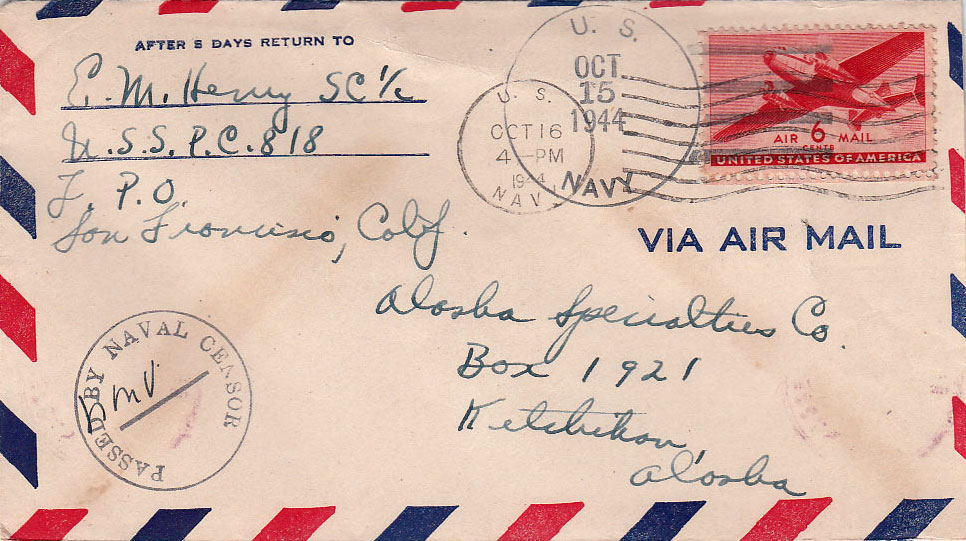 AFTER 5 DAYS RETURN TO
E. M. Henry SC 1/c
U.S.S. P.C. 818
F. P. O.
San Francisco, Calif.
U. S.
OCT 16
4 - PM
1944
NAV
U. S.
OCT
15
1944
NAVY
AIR 6 MAIL
CENTS
UNITED STATES OF AMERICA
VIA AIR MAIL
Alaska Specialties Co.
Box 1921
Ketchikan
Alaska
PASSED BY NAVAL CENSOR